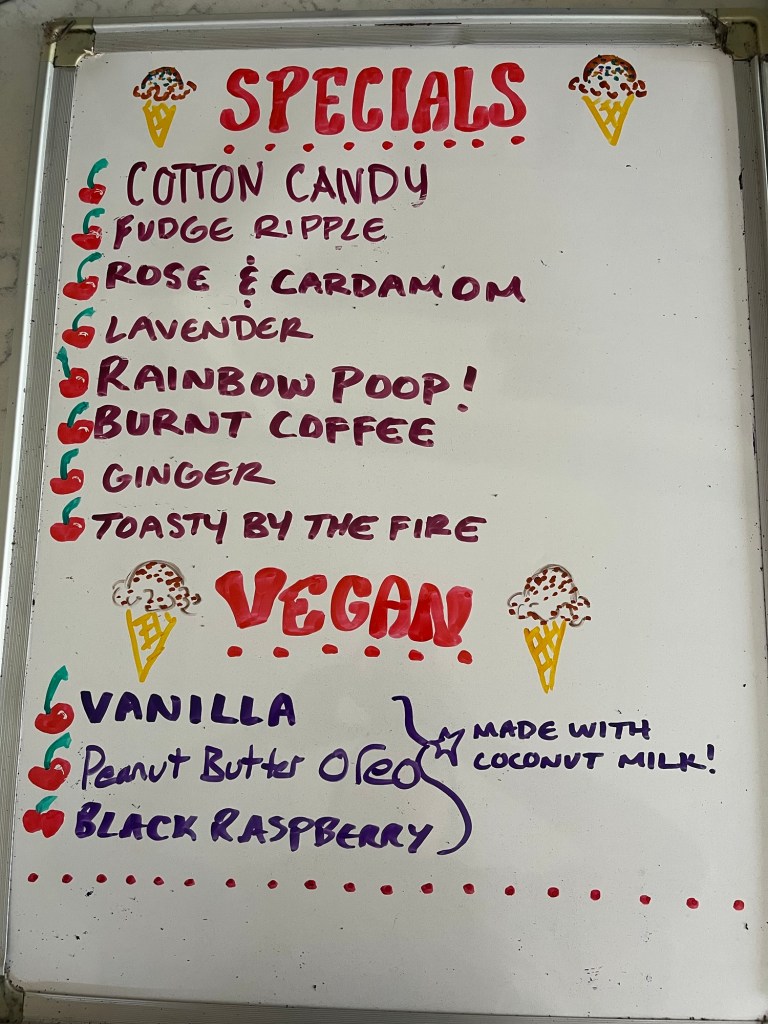 SPECIALS
COTTON CANDY
FUDGE RIPPLE
ROSE & CARDAMOM
LAVENDER
RAINBOW POOP!
BURNT COFFEE
GINGER
TOASTY BY THE FIRE
VEGAN
VANILLA
Peanut Butter Oreo
BLACK RASPBERRY
MADE WITH
COCONUT MILK!